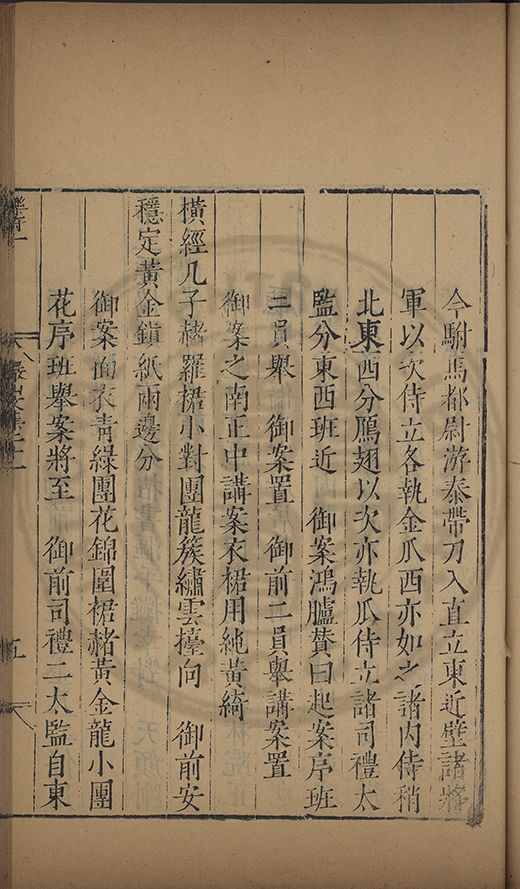 令駙馬都尉游泰帶刀入直立東近壁諸將
軍以次侍立各執金瓜西亦如之諸內侍稍
北東西分鴈翅以次亦執瓜侍立諸司禮太
監分東西班近　御案鴻臚贊曰起案序班
二員舉　御案置　御前二員舉講案置
御案之南正中講案衣裙用純黃綺
橫經几子赭羅裙小對團龍簇繡雲擡向　御前安
穩定黃金鎮紙兩邊分
御案面衣青綠團花錦圍裙赭黃金龍小團
花序班舉案將至　御前司禮二太監自東
五